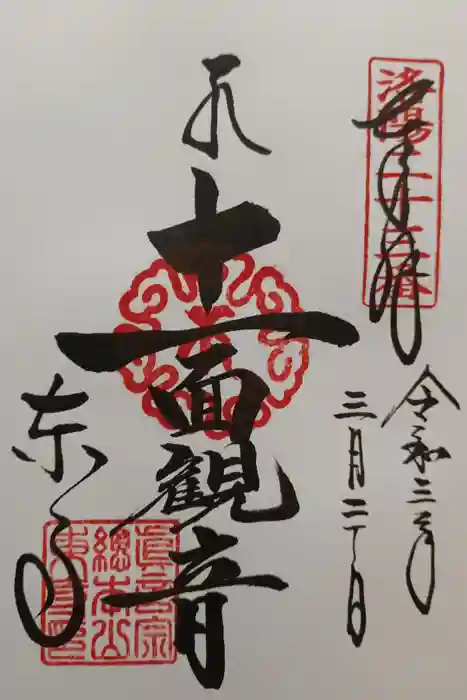 洛陽二十三番
奉拝
令和三年
三月二十日
十一面観音
東寺
眞言宗
總本山